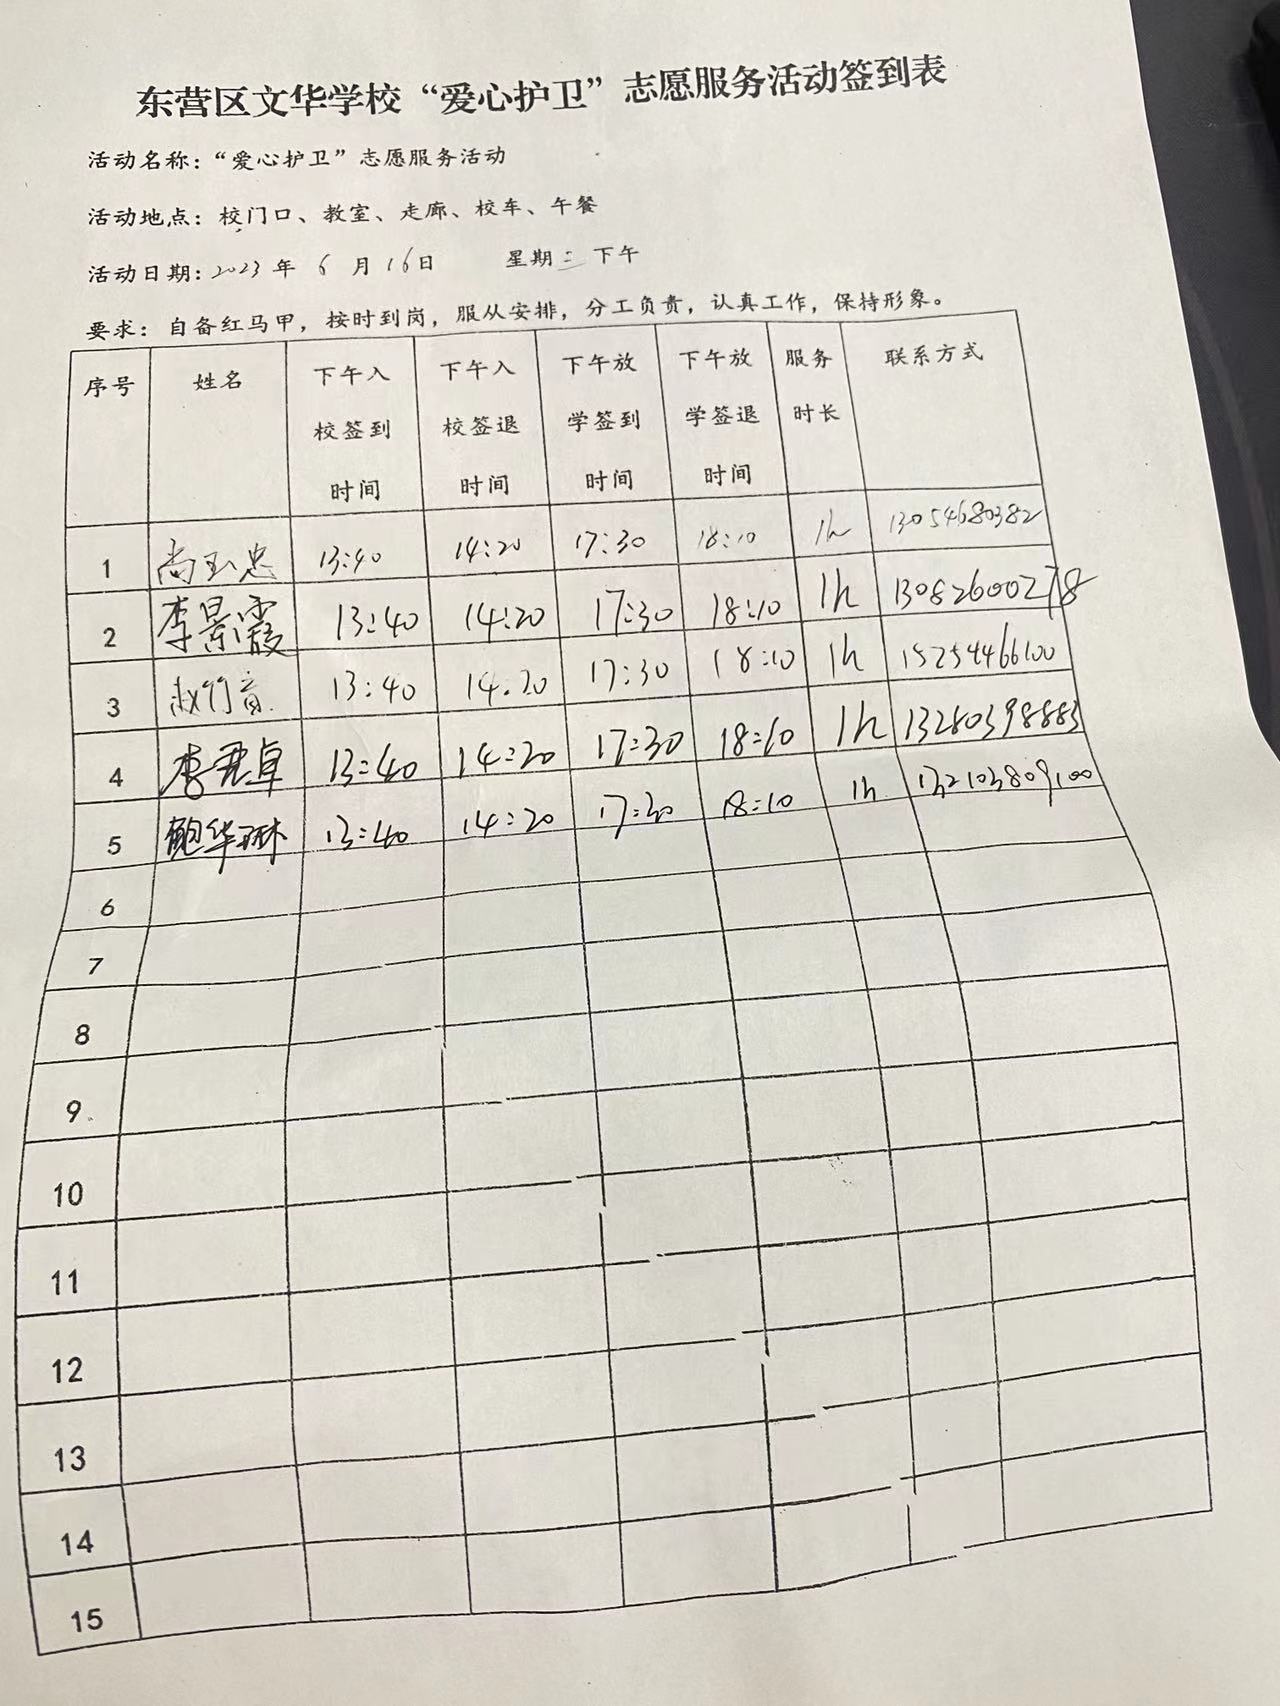 东营区文华学校“爱心护卫”志愿服务活动签到表
活动名称：“爱心护卫”志愿服务活动
活动地点：校门口、教室、走廊、校车、午餐
活动日期：2023年 6 月 16日 星期三 下午
要求：自备红马甲，按时到岗，服从安排，分工负责，认真工作，保持形象。
序号 姓名 下午入校签到时间 下午入校签退时间 下午放学签到时间 下午放学签退时间 服务时长 联系方式
1 尚玉忠 13:40 14:20 17:30 18:10 1h 13054680382
2 李景霞 13:40 14:20 17:30 18:10 1h 13082600278
3 赵竹音 13:40 14.20 17:30 18:10 1h 15254466100
4 李君卓 13:40 14:20 17:30 18:10 1h 13280398883
5 鲍华琳 13:40 14:20 17:30 18:10 1h 132103809100
6
7
8
9
10
11
12
13
14
15